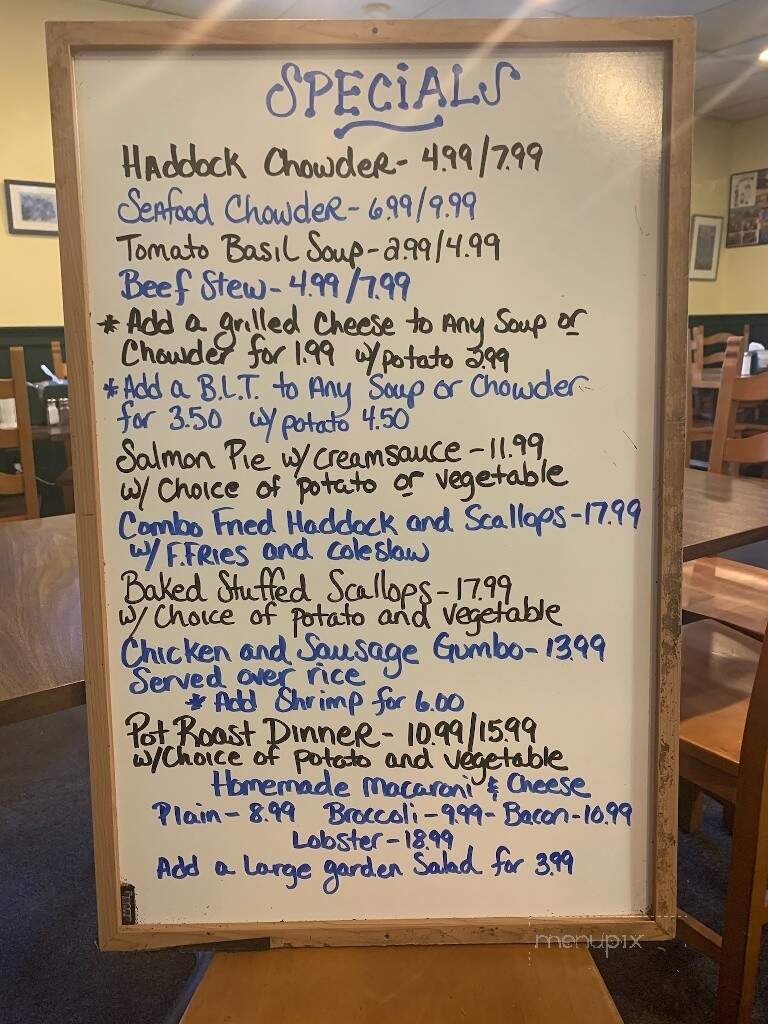 SPECiALS
HAddock ChowdeR- 4.99/7.99
SeAfood ChowdeR- 6.99/9.99
Tomato Basil Soup-2.99/4.99
Beef Stew- 4.99/7.99
* Add a grilled Cheese to Any Soup or
Chowder for 1.99 w/potato 2.99
* Add a B.L.T. to Any Soup or Chowder
for 3.50 w/ potato 4.50
Salmon Pie w/creamsauce - 11.99
w/ Choice of potato or vegetable
Combo Fried Haddock and Scallops-17.99
w/ F.FRies and coleslaw
Baked Stuffed Scallops-17.99
w/ Choice of potato and vegetable
Chicken and Sausage Gumbo- 13.99
Served over rice
* Add Shrimp for 6.00
Pot Roast DinneR- 10.99/15.99
w/Choice of potato and vegetable
Homemade Macaroni & Cheese
Plain- 8.99 Broccoli-9.99- Bacon-10.99
Lobster-18.99
Add a Large garden Salad for 3.99
menupix